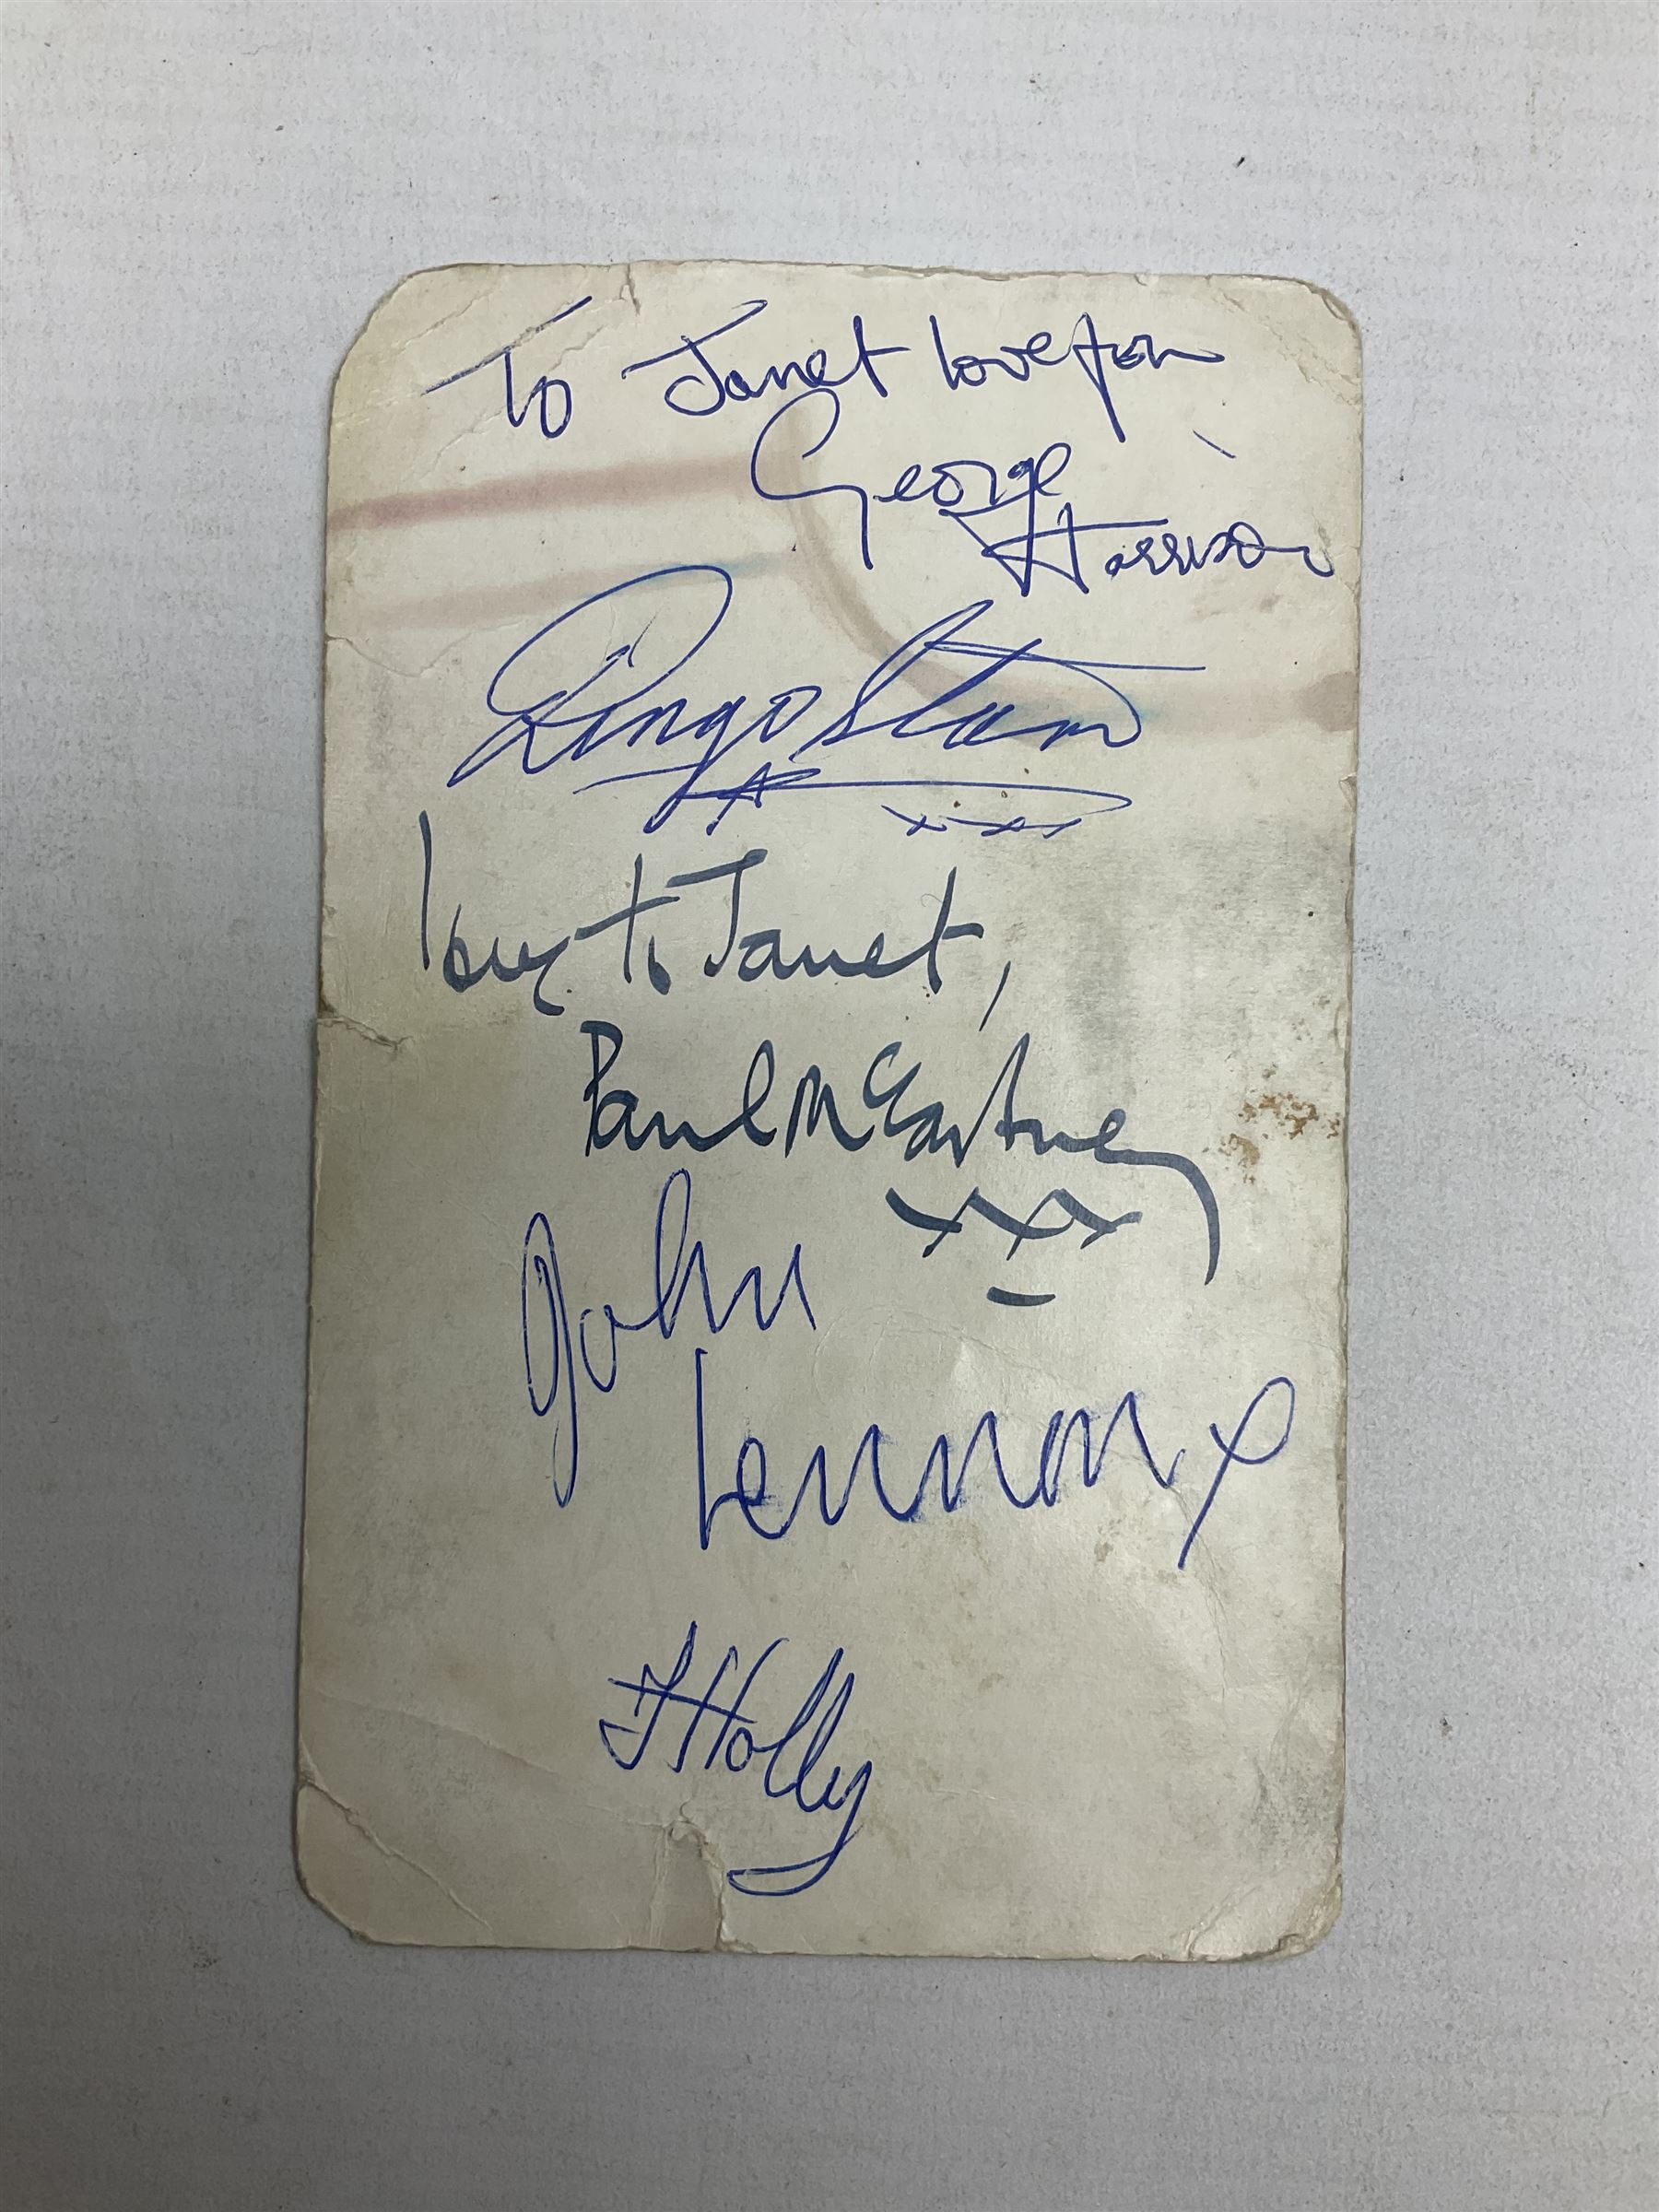 To Janet love from
George
Harrison
Ringo Starr
xxx
love to Janet,
Paul McCartney
xxx
John
Lennon x
Holly